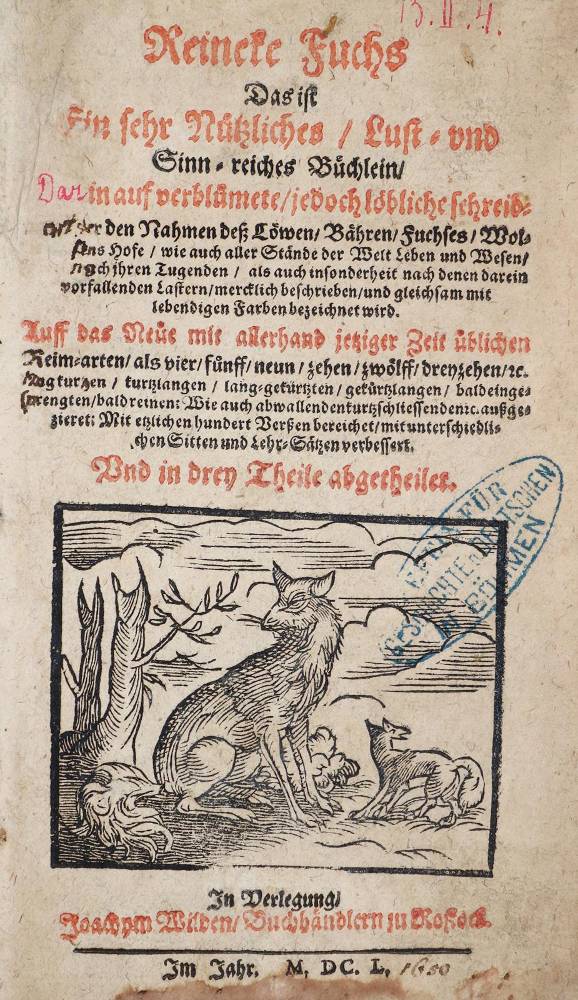 13. II. 4.
Reineke Fuchs
Das ist
Ein sehr Nützliches / Lust- vnd
Sinn-reiches Büchlein/
Darin auf verblümete/jedoch löbliche schreib-
art der den Nahmen deß Löwen/ Bähren/ Fuchses/ Wol-
fens Hofe / wie auch aller Stände der Welt Leben und Wesen/
nach jhren Tugenden / als auch insonderheit nach denen darein
vorfallenden Lastern/mercklich beschrieben/und gleichsam mit
lebendigen Farben bezeichnet wird.
Auff das Neüe mit allerhand jetziger Zeit üblichen
Reim-arten/als vier/fünff/neun/zehen/zwölff/dreyzehen/ꝛc.
kurtzen / kurtzlangen / lang-gekürtzten/ gekürtzlangen/ bald einge-
sprengten/bald reinen: Wie auch abwallenden kurtzschliessenden ꝛc. außge-
zieret: Mit etzlichen hundert Verßen bereichet/mit unterschiedli-
chen Sitten und Lehr-Sätzen verbessert.
Vnd in drey Theile abgetheilet.
VEREIN FÜR
GESCHICHTE D. DEUTSCHEN
IN BÖHMEN
In Verlegung/
Joachym Wilden/ Buchhändlern zu Rostock.
Im Jahr. M, DC. L, 1650